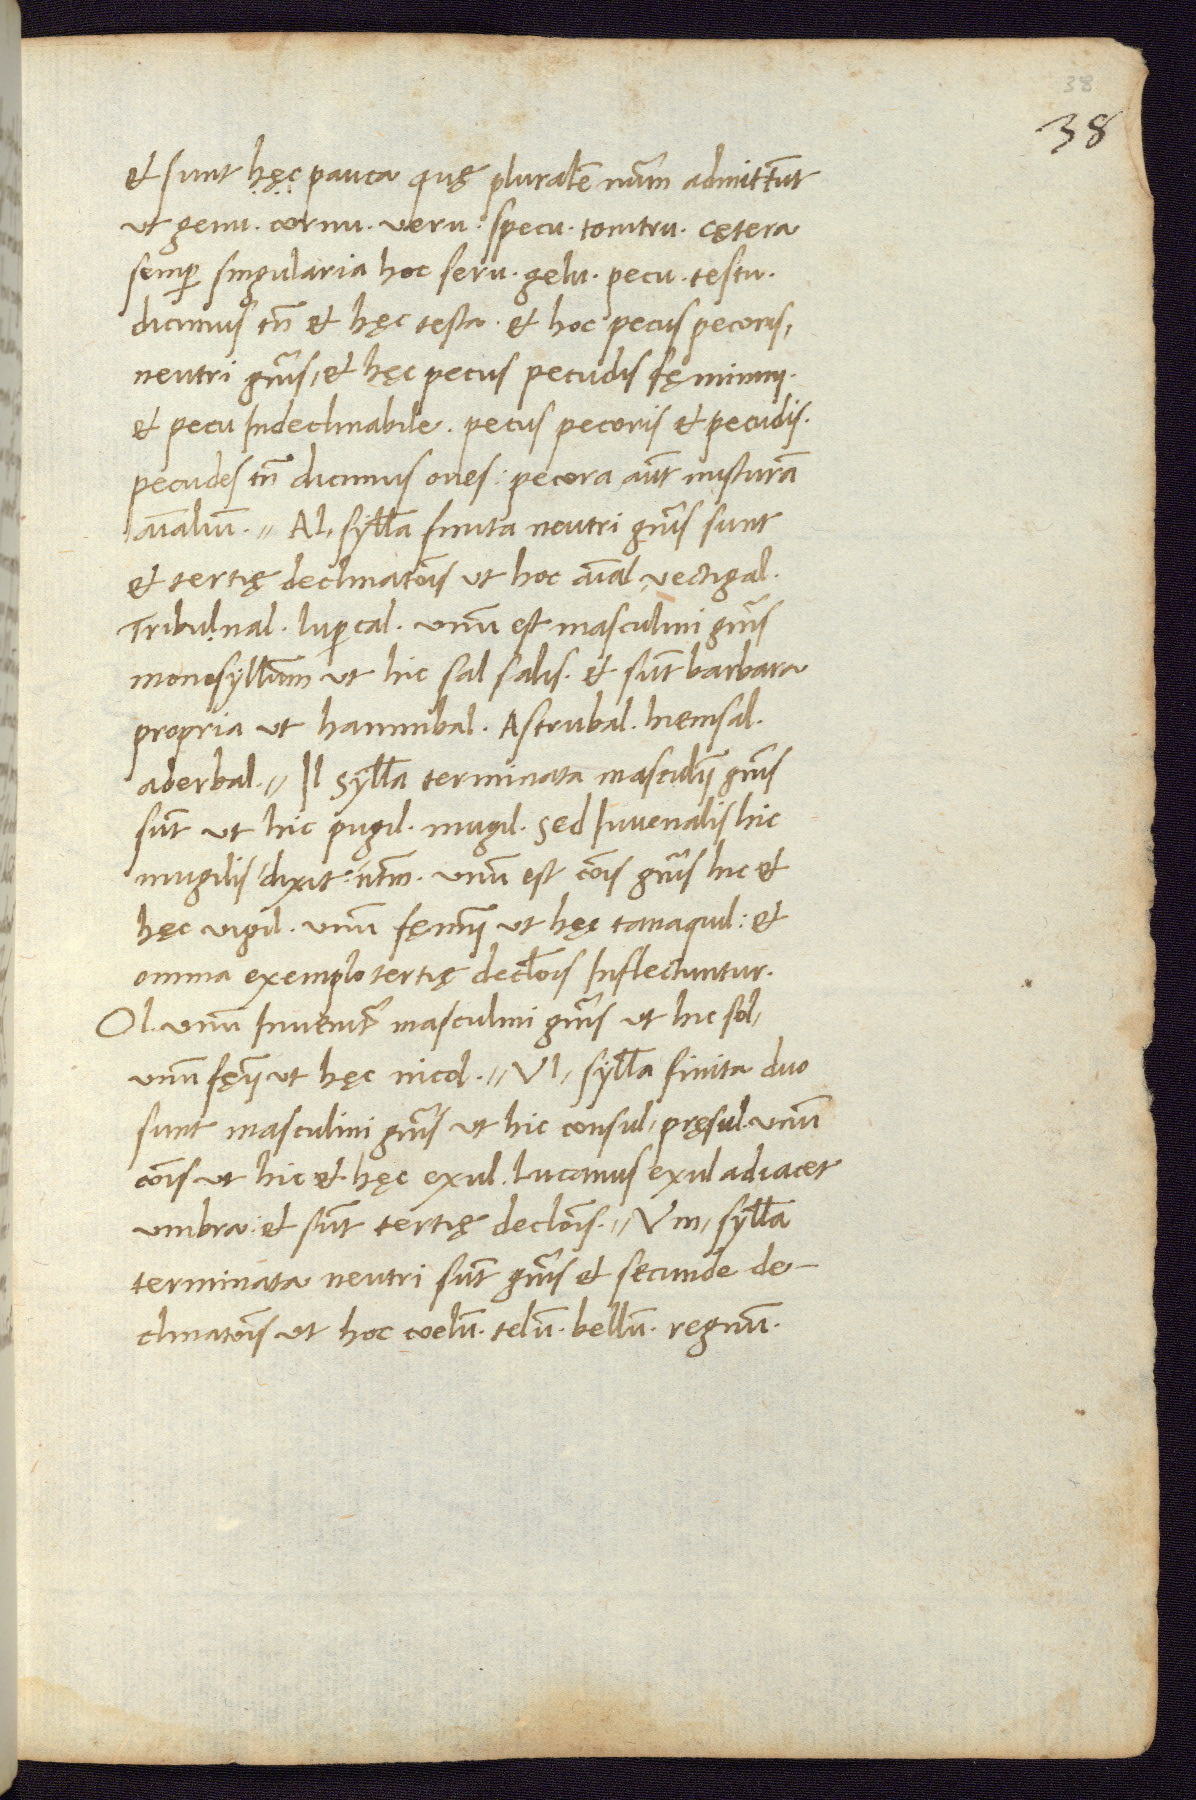 38
38
et sunt hęc pauca quę pluralẽ nũm admittũt
ut genu. cornu. veru. specu. tonitru. cętera
semp̃ singularia hoc seru. gelu. pecu. testu.
dicimus tñ et hęc testa. et hoc pecus pecoris,
neutri gñis, et hęc pecus pecudis fęminini.
et pecu indeclinabile. pecus pecoris et pecudis.
pecudes tñ dicimus oues: pecora aũt misturã
aĩaliũ.,, Al, sylla finita neutri gñis sunt
et tertię declinatõis ut hoc aĩal vectigal.
Tribunal. lupercal. unũ est masculini gñis
monosyllum ut hic sal salis. et sũt barbara
propria ut hannibal. Astrubal. hiemsal.
aderbal.,, Il sylla terminata masculĩ gñis
sũt ut hic pugil. mugil. sed Iuvenalis hic
mugilis dixit: ntm. unũ est cõis gñis hic et
hęc vigil. unũ fęmĩ ut hęc tanaquil: et
omnia exemplo tertię declõis inflectuntur.
Ol. unũ invenit̃ masculini gñis ut hic sol,
unũ fęĩ ut hęc nicol.,, Vl, sylla finita duo
sunt masculini gñis ut hic consul, pręsul. unũ
cõis ut hic et hęc exul. Lucanus exul adiacet
umbra: et sũt tertię declõis.,, Vm, sylla
terminata neutri sũt gñis et secunde de-
clinatõis ut hoc coelũ. telũ. bellũ. regnũ.